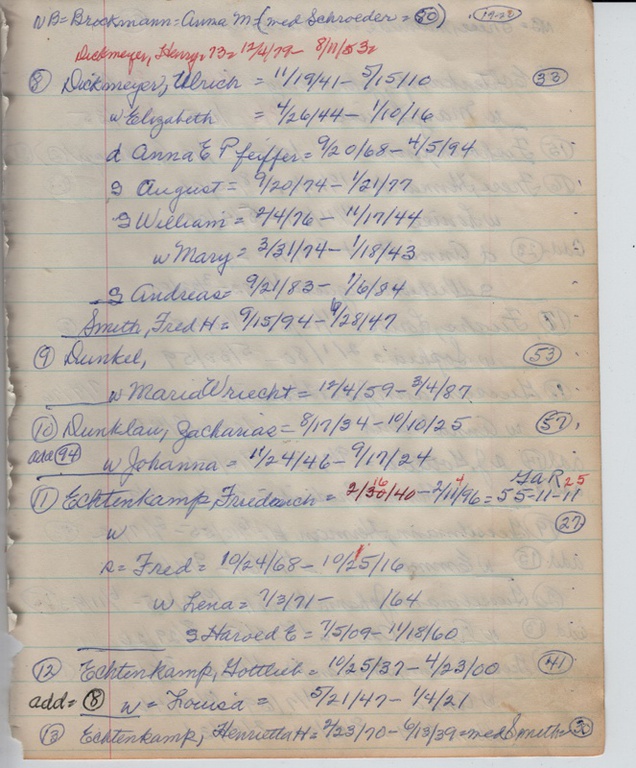 NB = Brockmann = Anna M - (med Schroeder = 50) 1922
Dickmeyer, Henry = 73 = 12/4/79 - 8/11/53
8 Dickmeyer, Ulrich = 11/19/41 - 5/15/10 33
w Elizabeth = 4/26/44 - 1/10/16
d Anna E Pfeiffer = 9/20/68 - 4/5/94
s August = 9/20/74 - 1/21/77
s William = 2/4/76 - 11/17/44
w Mary = 3/31/74 - 1/18/43
s Andreas = 9/21/83 - 1/6/84
Smith, Fred H = 9/15/94 - 6/28/47
9 Dunkel, 53
w Maria Wriecht = 12/4/59 - 3/4/87
10 Dunklau, Zacharias = 8/17/34 - 10/10/25 57
add 94 w Johanna = 11/24/46 - 9/17/24
GaR 25
11 Echtenkamp, Friedarich = 2/16/40 - 2/11/96 = 55-11-11
w 27
s = Fred = 10/24/68 - 10/25/16
w Lena = 7/3/71 - /64
s Haroed E = 7/5/09 - 11/18/60
12 Echtenkamp, Gottlieb = 10/25/37 - 4/23/00 41
add = 8 w = Louisa = 5/21/47 - 1/4/21
13 Echtenkamp, Henrietta H = 2/23/70 - 6/13/39 = med Smith = 30